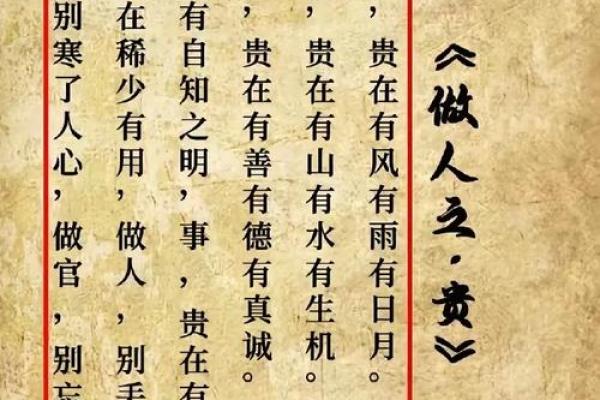 《做人之·贵》
，贵在有风有雨有日月。
，贵在有山有水有生机。
，贵在有善有德有真诚。
有自知之明，事，贵在有
在稀少有用，做人，别
别寒了人心，做官，别忘